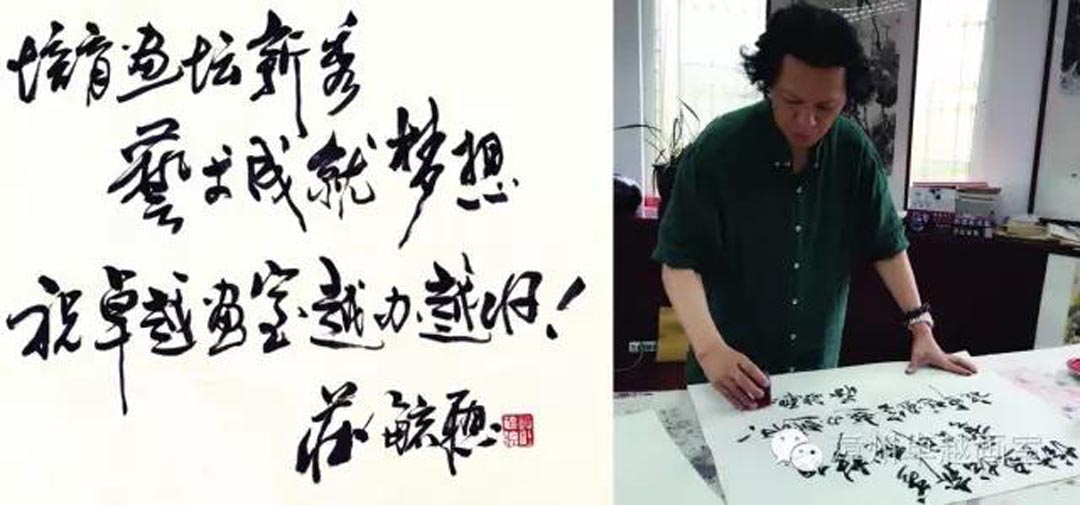 培育画坛新秀
藝术成就梦想
祝卓越画室越办越好！
莊毓聰
漳州卓越画室